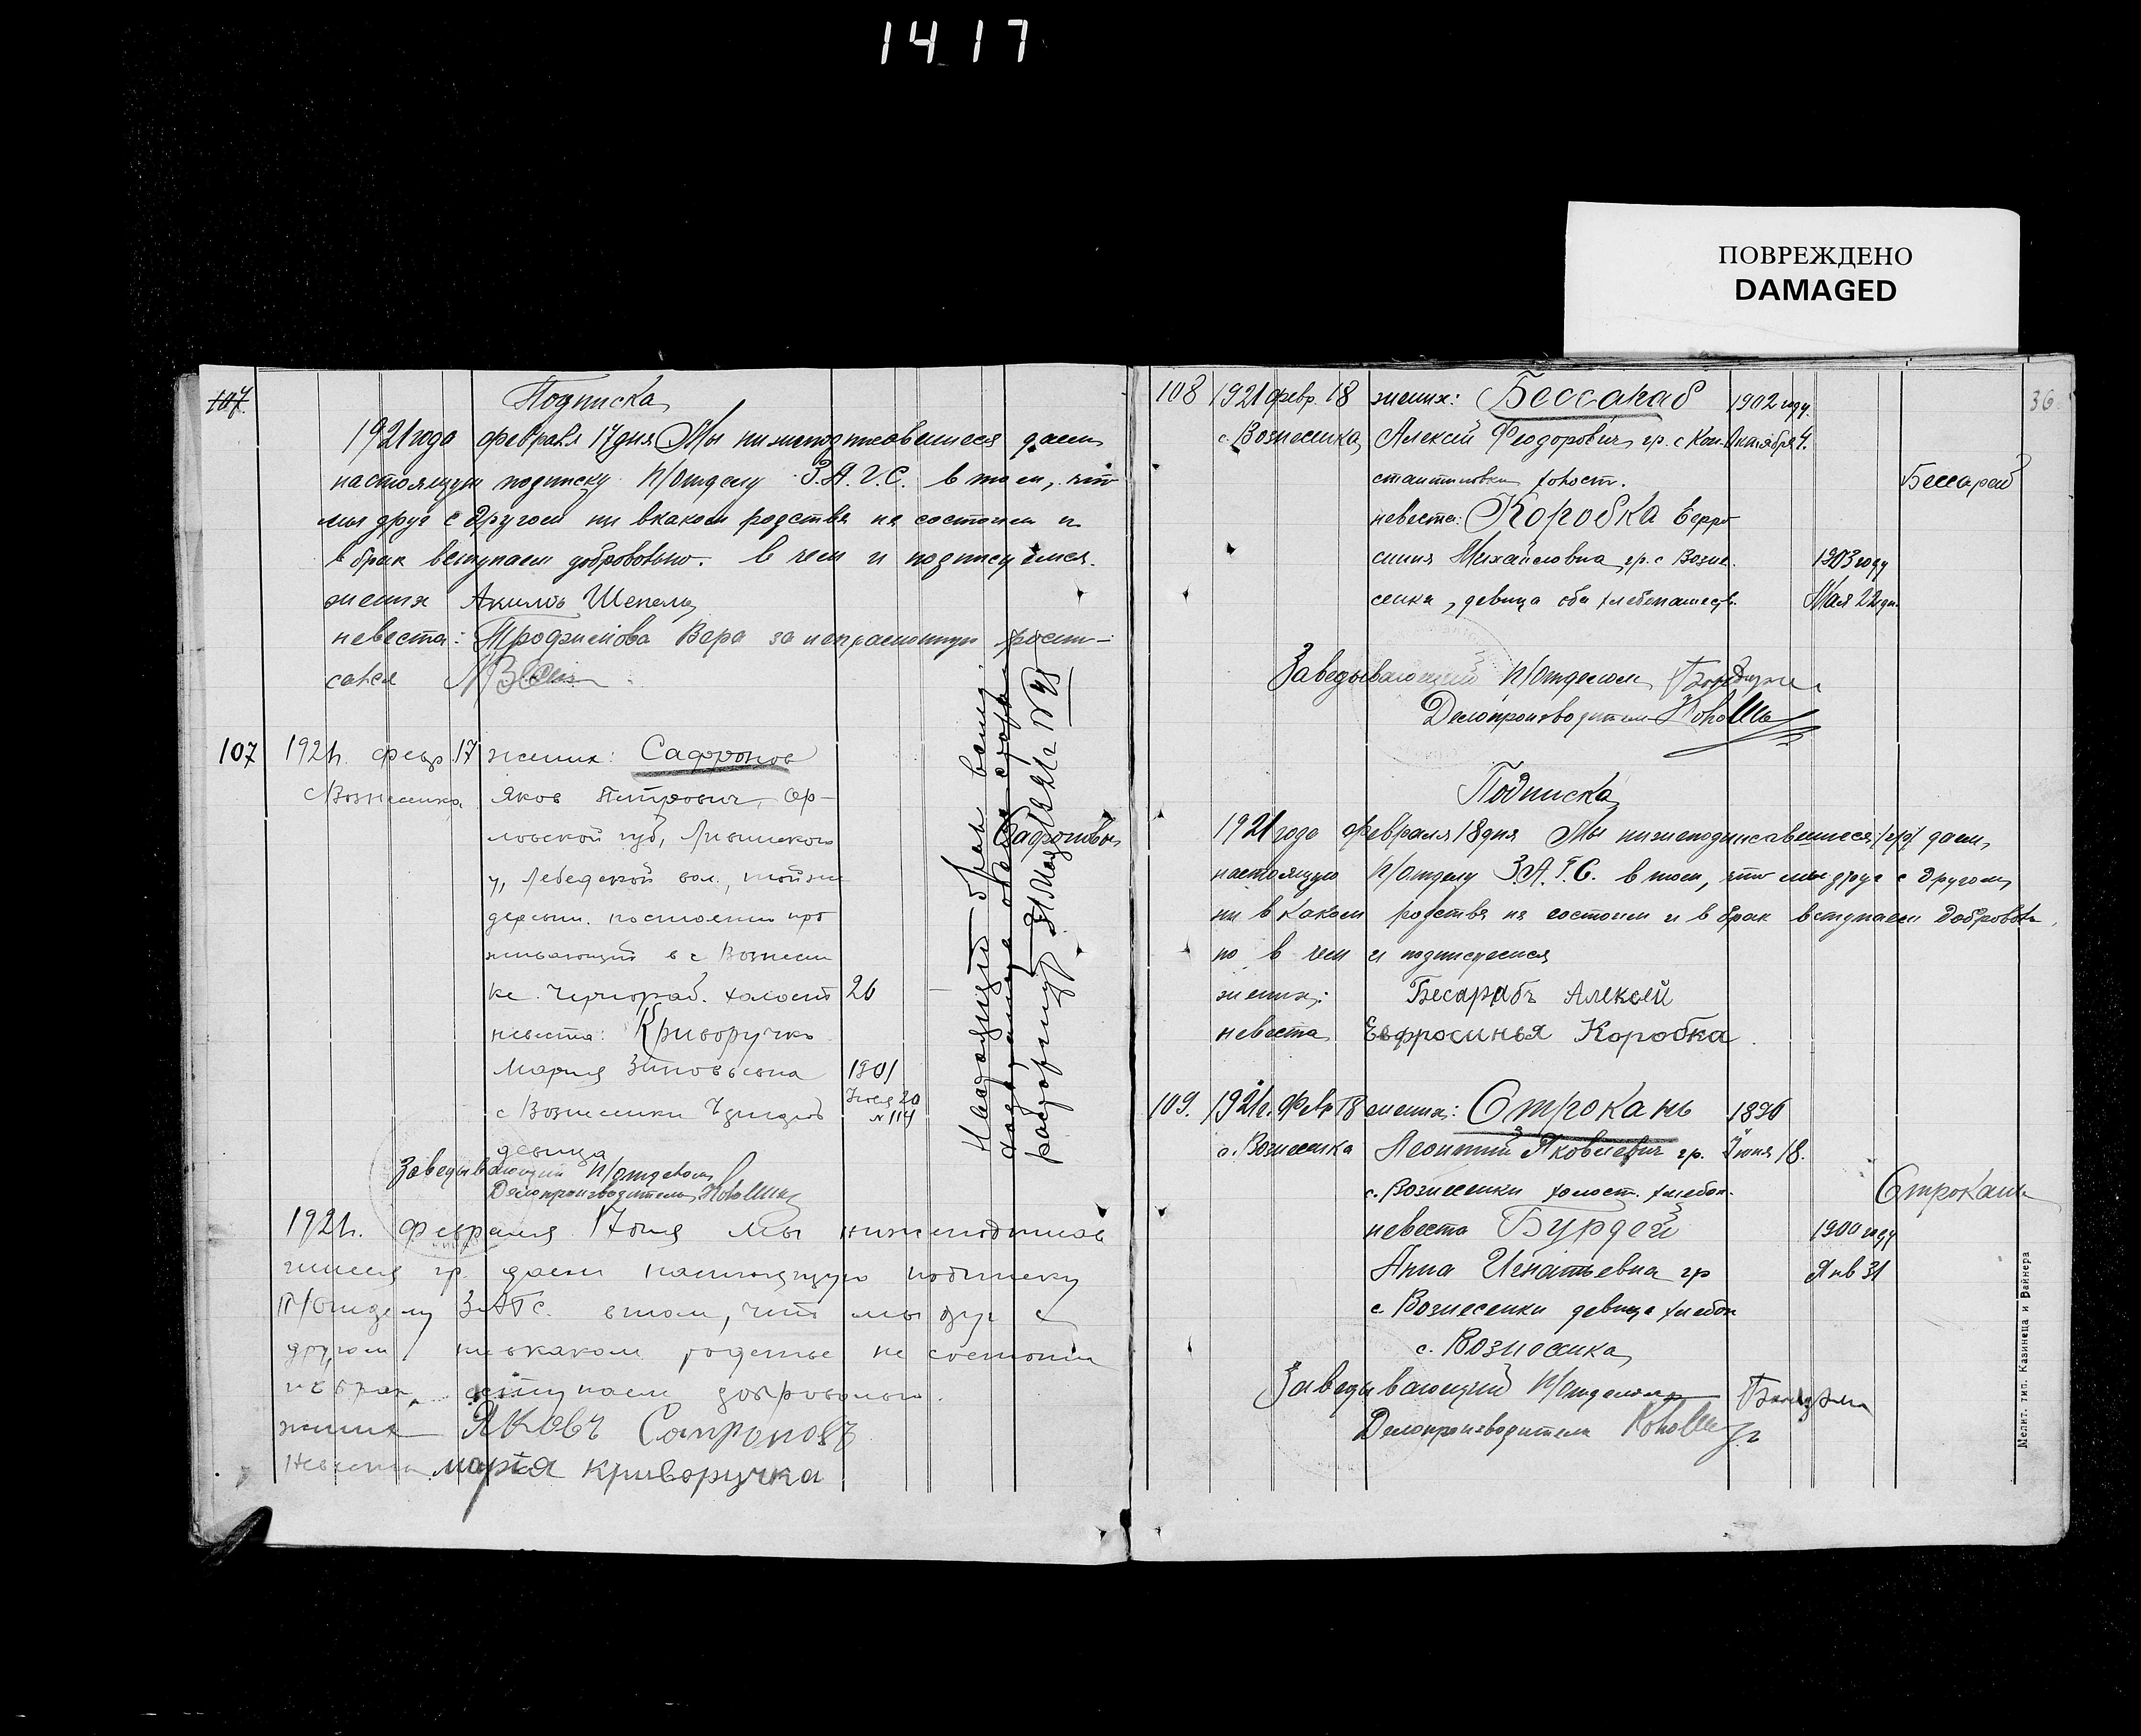 1417
ПОВРЕЖДЕНО
DAMAGED
107.
Подписка
1921 года февраля 17 дня Мы нижеподписавшиеся даем
настоящую подписку П/Отделу З.А.Г.С. в том, что
мы друг с другом ни в каком родстве не состоим и
в брак вступаем добровольно. в чем и подписуемся.
жених Акимъ Шепель
невеста: Трофимова Вера за неграмотную роспи-
сался
107 1921г. февр. 17 жених: Сафронов
с Вознесенка Яков Петрович, Ор-
ловской губ,
у, Лебедской вол., той же
деревни. постоянно про
живающий в с Вознесен
ке. Чернораб. холост 20
невеста: Криворучко
Мария Зиновьевна 1901
с Вознесенки Июля 20
№ 114
девица
Заведывающий П/отделом
Делопроизводитель
Сафроновы
Настоящий брак
расторгнут
1921г. февраля 17 дня мы нижеподписав
шиеся гр. даем настоящую подписку
П/Отделу ЗАГС. в том, что мы друг с
другом ни в каком родстве не состоим
и в брак вступаем добровольно.
жених Яковъ Сапроновъ
Невеста марія криворучка
36.
108 1921 февр. 18 жених: Бессараб 1902 году
с. Вознесенка Алексей Феодорович гр. с Кон- Октября 4.
стантиновки холост.
Бессараб
невеста: Коробка Евфро
синия Михайловна гр. с Возне- 1903 году
сенки, девица оба хлебопашеств. Мая 22 дн.
Заведывающий П/Отделом
Делопроизводитель
Подписка
1921 года февраля 18 дня Мы нижеподписавшиеся гр. даем
настоящую П/Отделу З.А.Г.С. в том, что мы друг с другом
ни в каком родстве не состоим и в брак вступаем добровол
но в чем и подписуемся
жених: Бесарабъ Алексей
невеста Евфросинья Коробка
109. 1921г. Февр 18 жених: Строкань 1896
с. Вознесенка Леонтий Яковлевич гр. Июня 18.
с. Вознесенки холост. хлебоп.
Строкань
невеста Бурдей 1900 году
Анна Игнатьевна гр Янв 31
с. Вознесенки девица хлебоп
с. Вознесенка
Заведывающий П/Отделом
Делопроизводитель
Мелит. тип. Казинеца и Вайнера